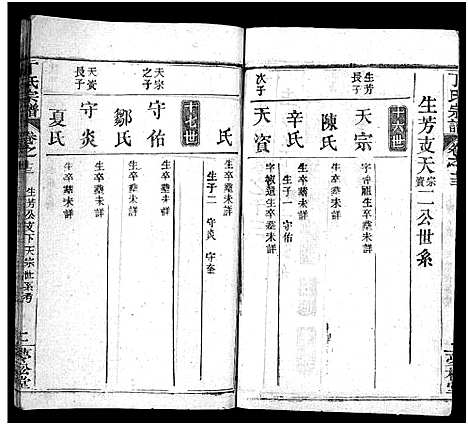 丁氏宗譜
卷之十三
生芳支天宗資二公世系
生芳長子
天宗
生卒塟未詳
陳氏
生卒塟未詳
辛氏
生卒塟未詳
生子一 守佑
次子
天資
生卒塟未詳
氏
生卒塟未詳
生子二 守炎 守奎
天宗之子
守佑
生卒塟未詳
鄒氏
生卒塟未詳
天資長子
守炎
生卒塟未詳
夏氏
生卒塟未詳
氏宗譜
卷之十三
生芳公支下天宗世系